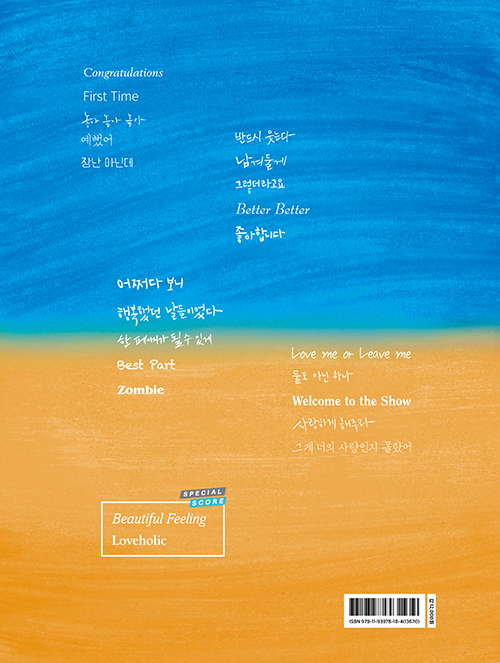 Congratulations
First Time
놓아 놓아 놓아
예뻤어
장난 아닌데
반드시 웃는다
남겨둘게
그렇더라고요
Better Better
좋아합니다
어쩌다 보니
행복했던 날들이었다
한 페이지가 될 수 있게
Best Part
Zombie
Love me or Leave me
둘도 아닌 하나
Welcome to the Show
사랑하게 해주라
그게 너의 사랑인지 몰랐어
SPECIAL
SCORE
Beautiful Feeling
Loveholic
ISBN 979-11-93978-18-4(13670)
값 12,000원